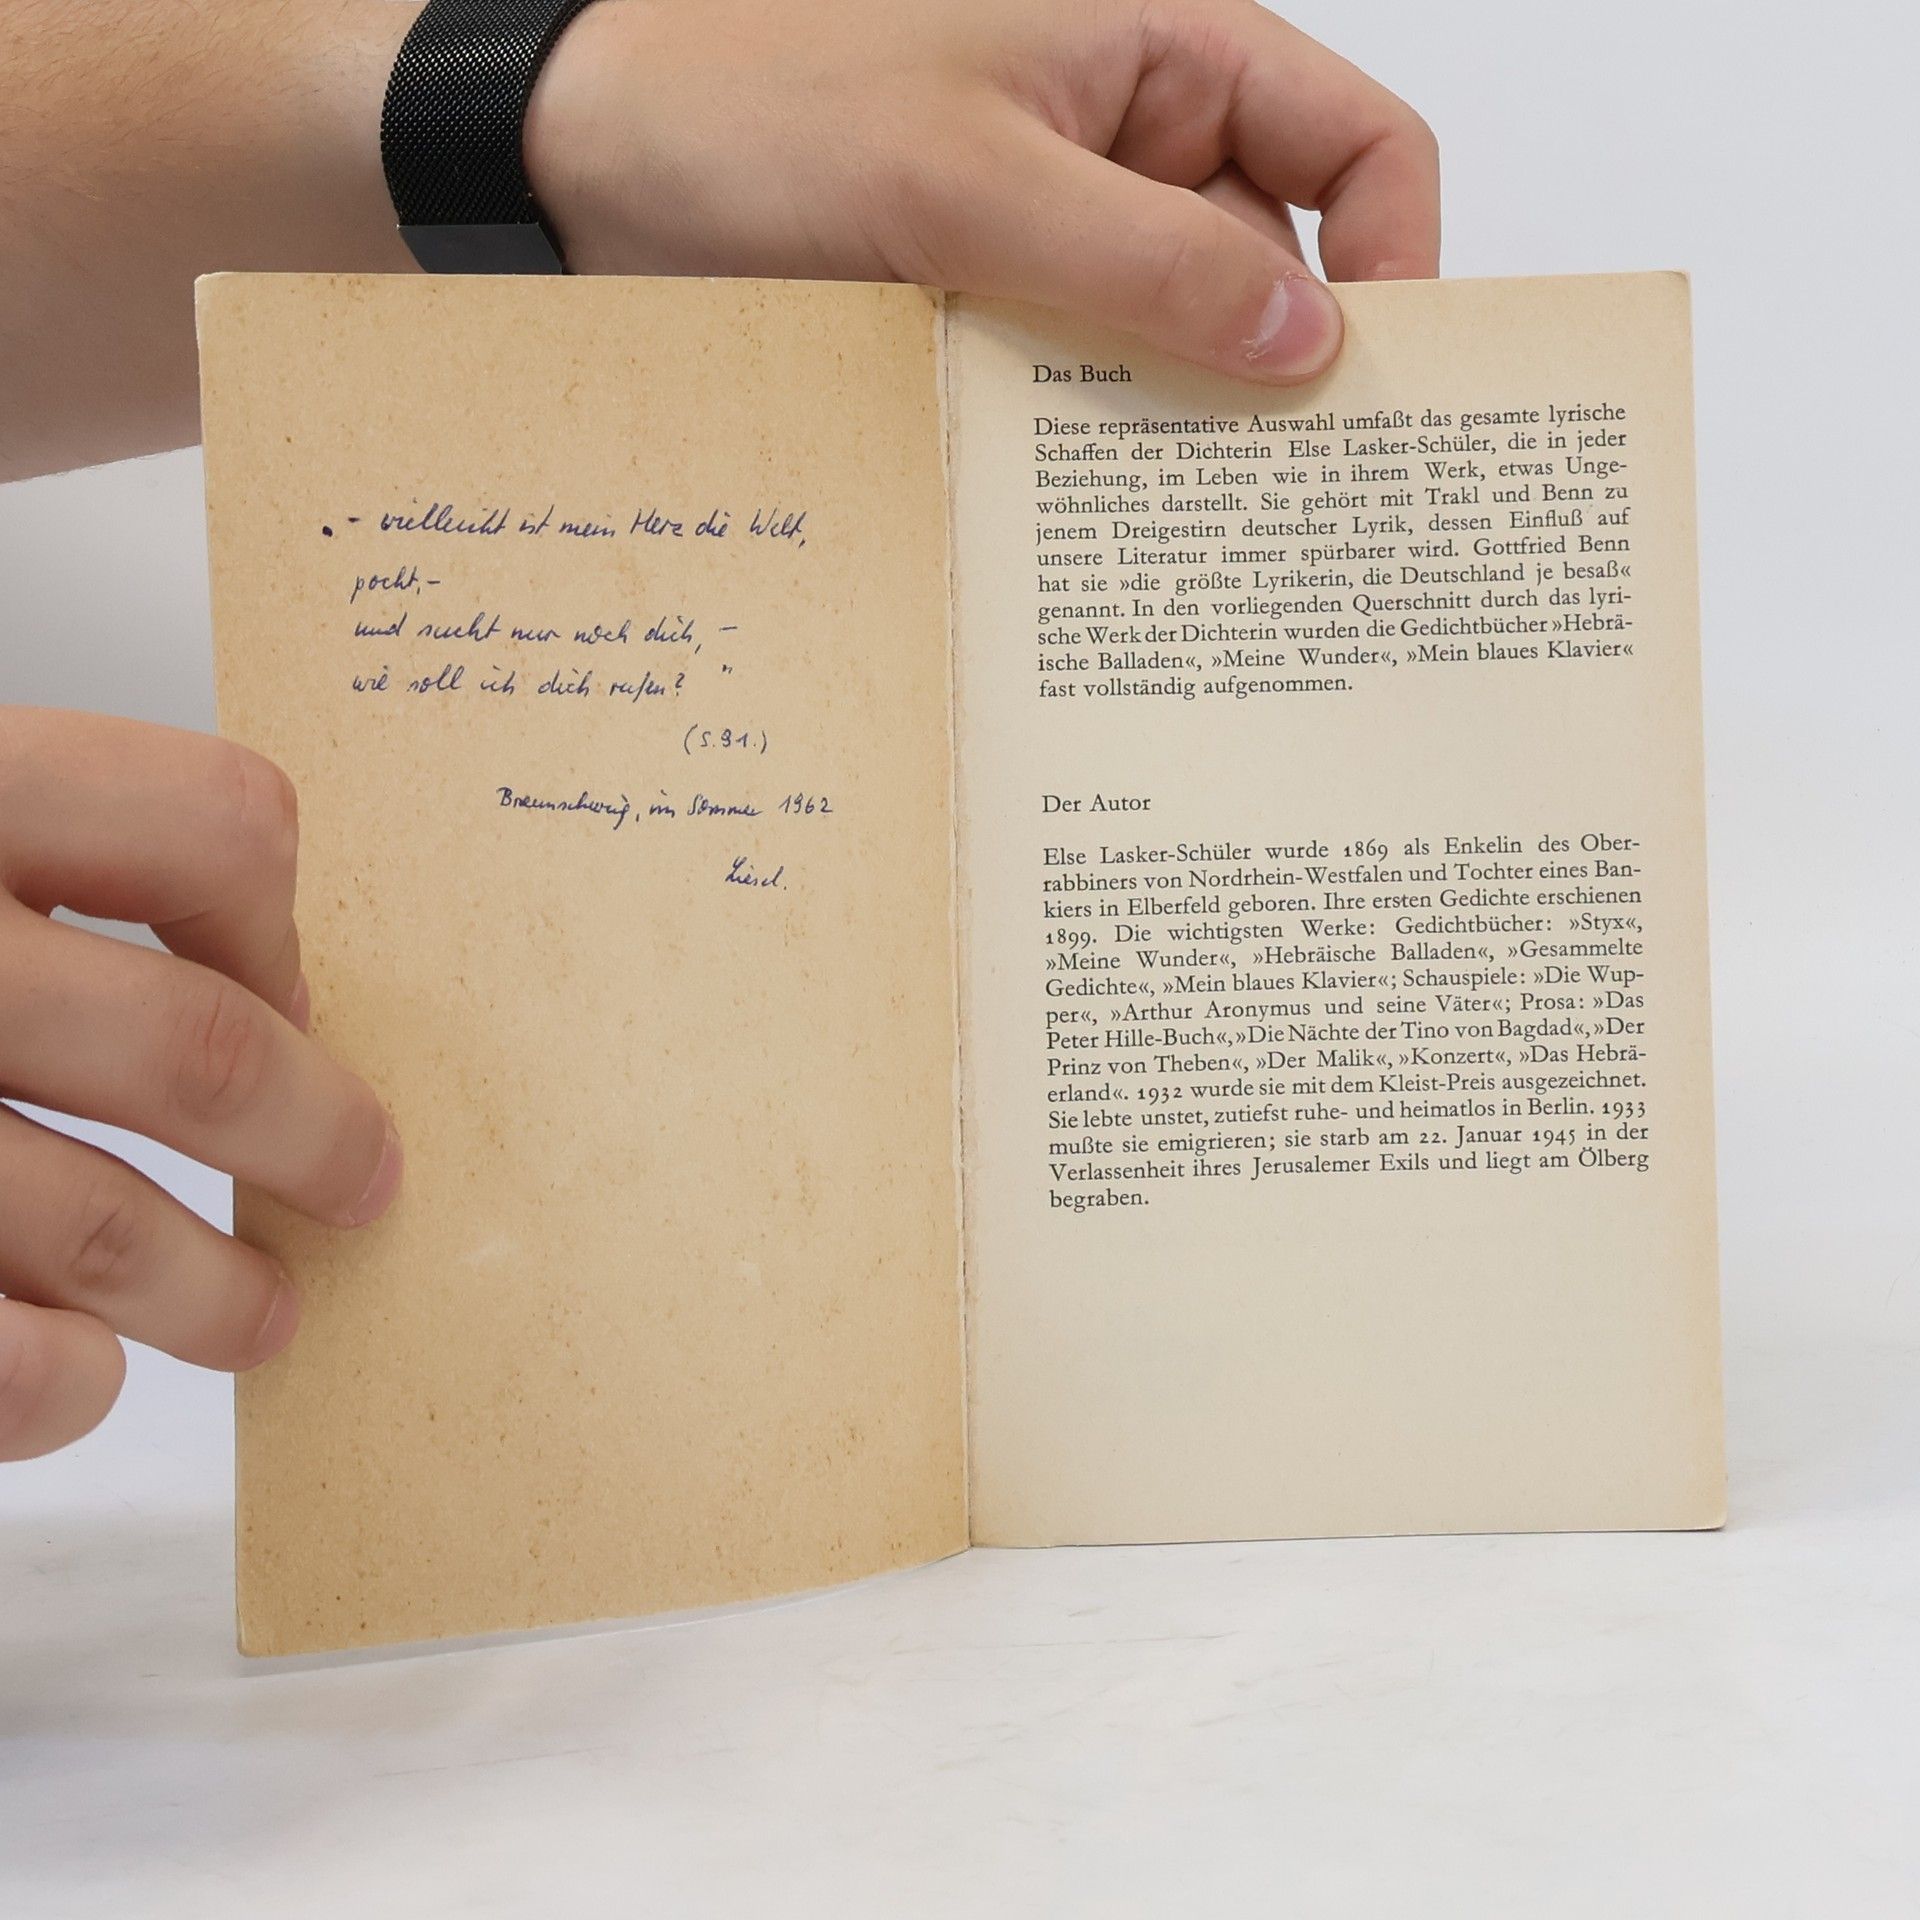 „- vielleicht ist mein Herz die Welt,
pocht,-
und sucht nur noch dich, -
wie soll ich dich rufen? "
(S.91.)
Braunschweig, im Sommer 1962
Liesel.
Das Buch
Diese repräsentative Auswahl umfaßt das gesamte lyrische
Schaffen der Dichterin Else Lasker-Schüler, die in jeder
Beziehung, im Leben wie in ihrem Werk, etwas Unge-
wöhnliches darstellt. Sie gehört mit Trakl und Benn zu
jenem Dreigestirn deutscher Lyrik, dessen Einfluß auf
unsere Literatur immer spürbarer wird. Gottfried Benn
hat sie »die größte Lyrikerin, die Deutschland je besaß«
genannt. In den vorliegenden Querschnitt durch das lyri-
sche Werk der Dichterin wurden die Gedichtbücher »Hebrä-
ische Balladen«, »Meine Wunder«, »Mein blaues Klavier«
fast vollständig aufgenommen.
Der Autor
Else Lasker-Schüler wurde 1869 als Enkelin des Ober-
rabbiners von Nordrhein-Westfalen und Tochter eines Ban-
kiers in Elberfeld geboren. Ihre ersten Gedichte erschienen
1899. Die wichtigsten Werke: Gedichtbücher: »Styx«,
»Meine Wunder«, »Hebräische Balladen«, »Gesammelte
Gedichte«, »Mein blaues Klavier«; Schauspiele: »Die Wup-
per«, »Arthur Aronymus und seine Väter«; Prosa: »Das
Peter Hille-Buch«, »Die Nächte der Tino von Bagdad«, »Der
Prinz von Theben«, »Der Malik«, »Konzert«, »Das Hebrä-
erland«. 1932 wurde sie mit dem Kleist-Preis ausgezeichnet.
Sie lebte unstet, zutiefst ruhe- und heimatlos in Berlin. 1933
mußte sie emigrieren; sie starb am 22. Januar 1945 in der
Verlassenheit ihres Jerusalemer Exils und liegt am Ölberg
begraben.